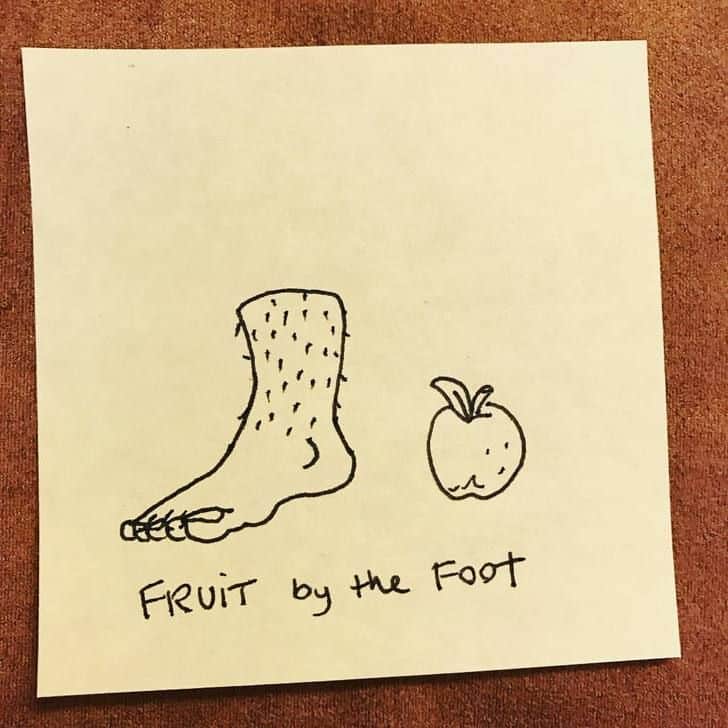 FRUIT by the Foot